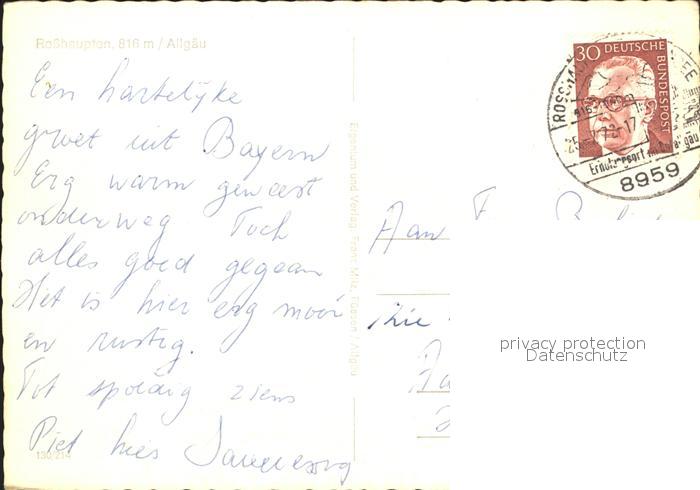 Roßhaupten, 816 m / Allgäu
Een hartelijke
groet uit Bayern
Erg warm geweest
onderweg Toch
alles goed gegaan
Het is hier erg mooi
en rustig.
Tot spoedig ziens
Piet
130/214
Eigentum und Verlag Franz Milz, Füssen / Allgäu
30 DEUTSCHE BUNDESPOST
8959
Aan
privacy protection
Datenschutz